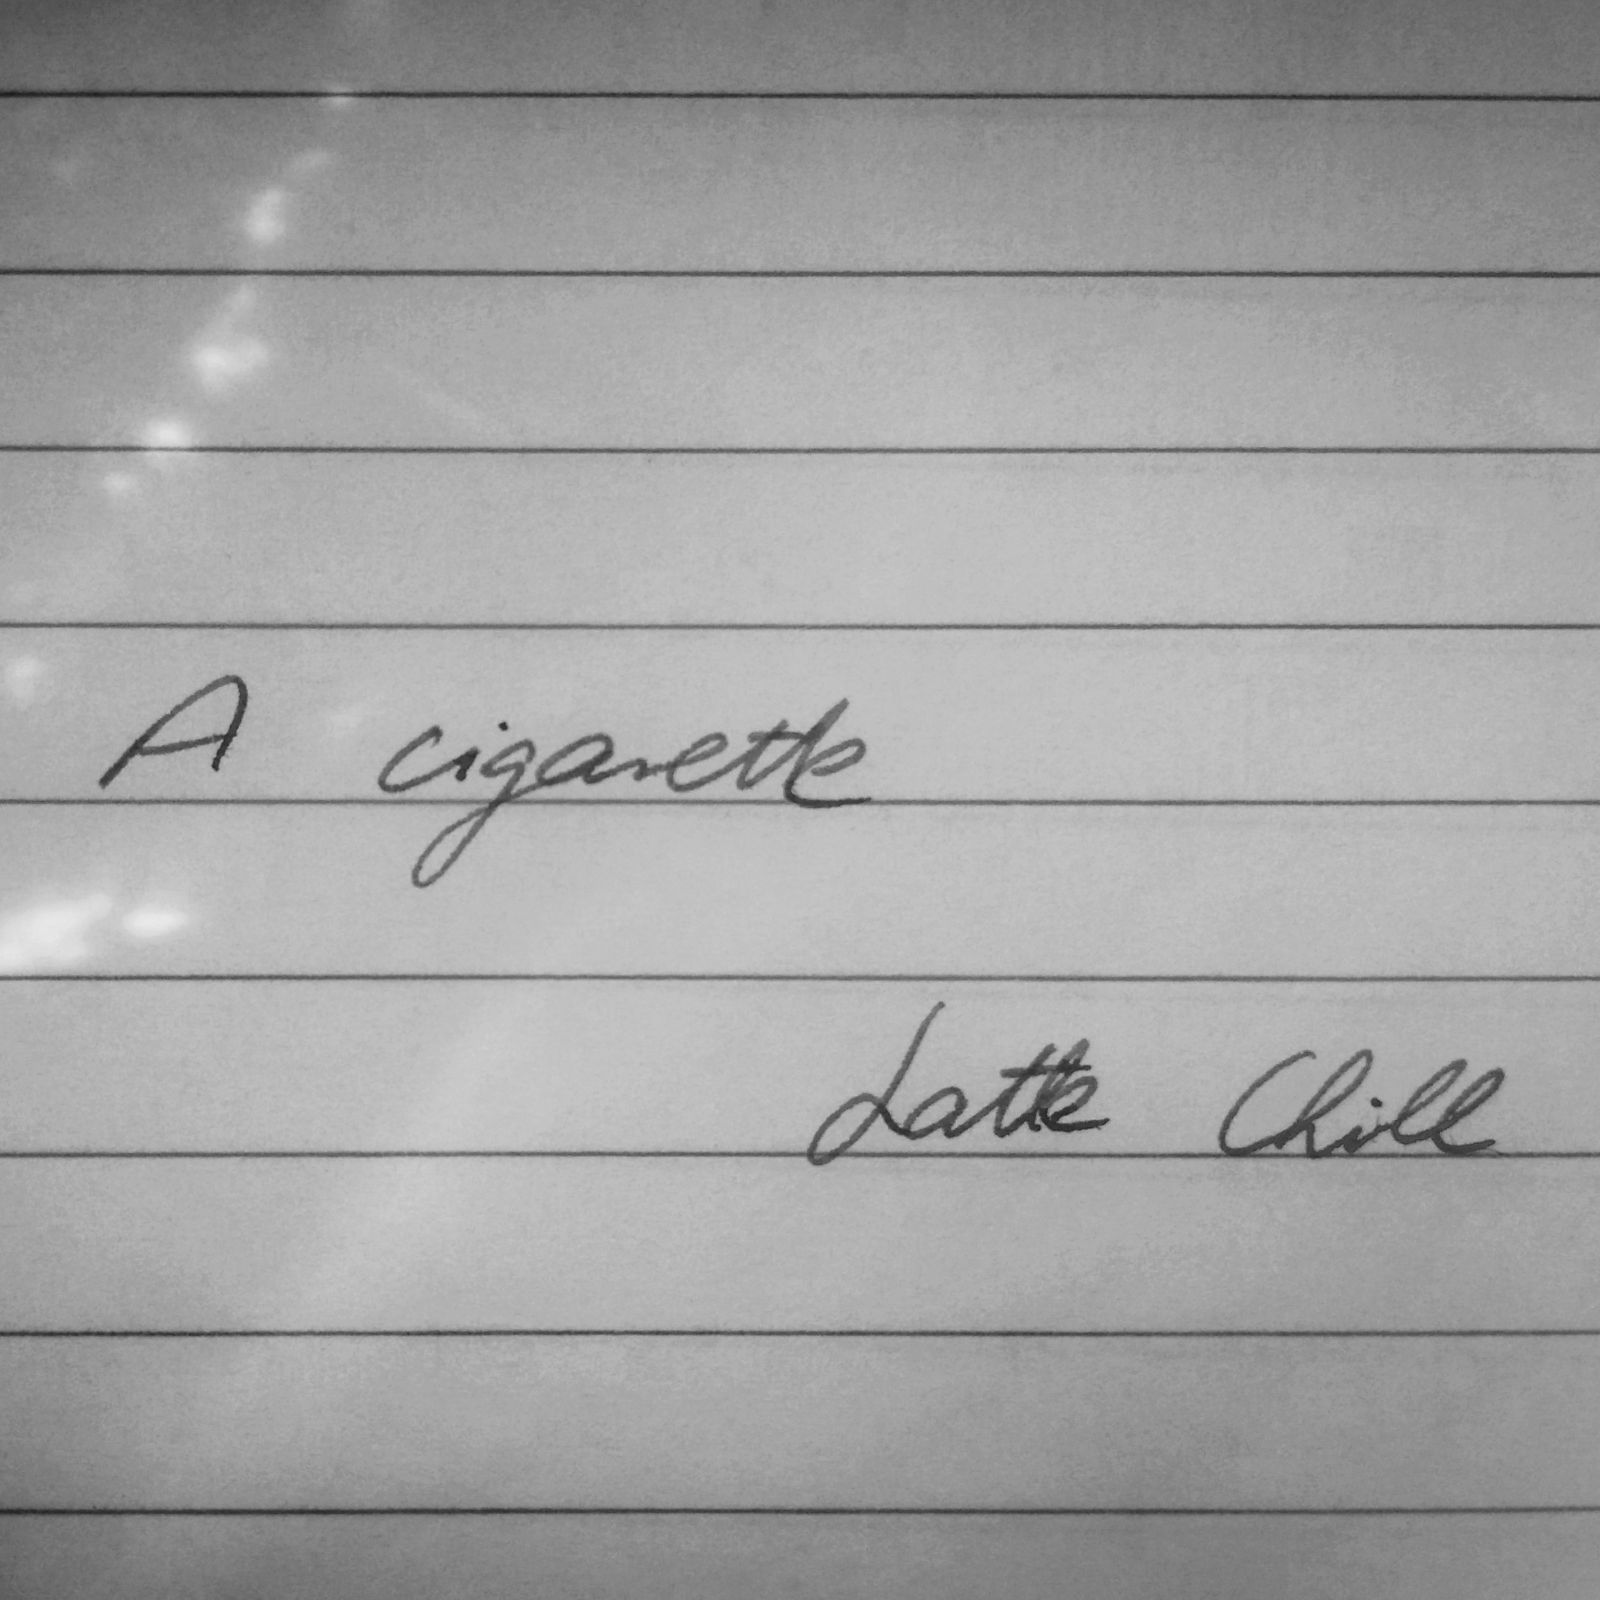 A cigarette
Latte Chill